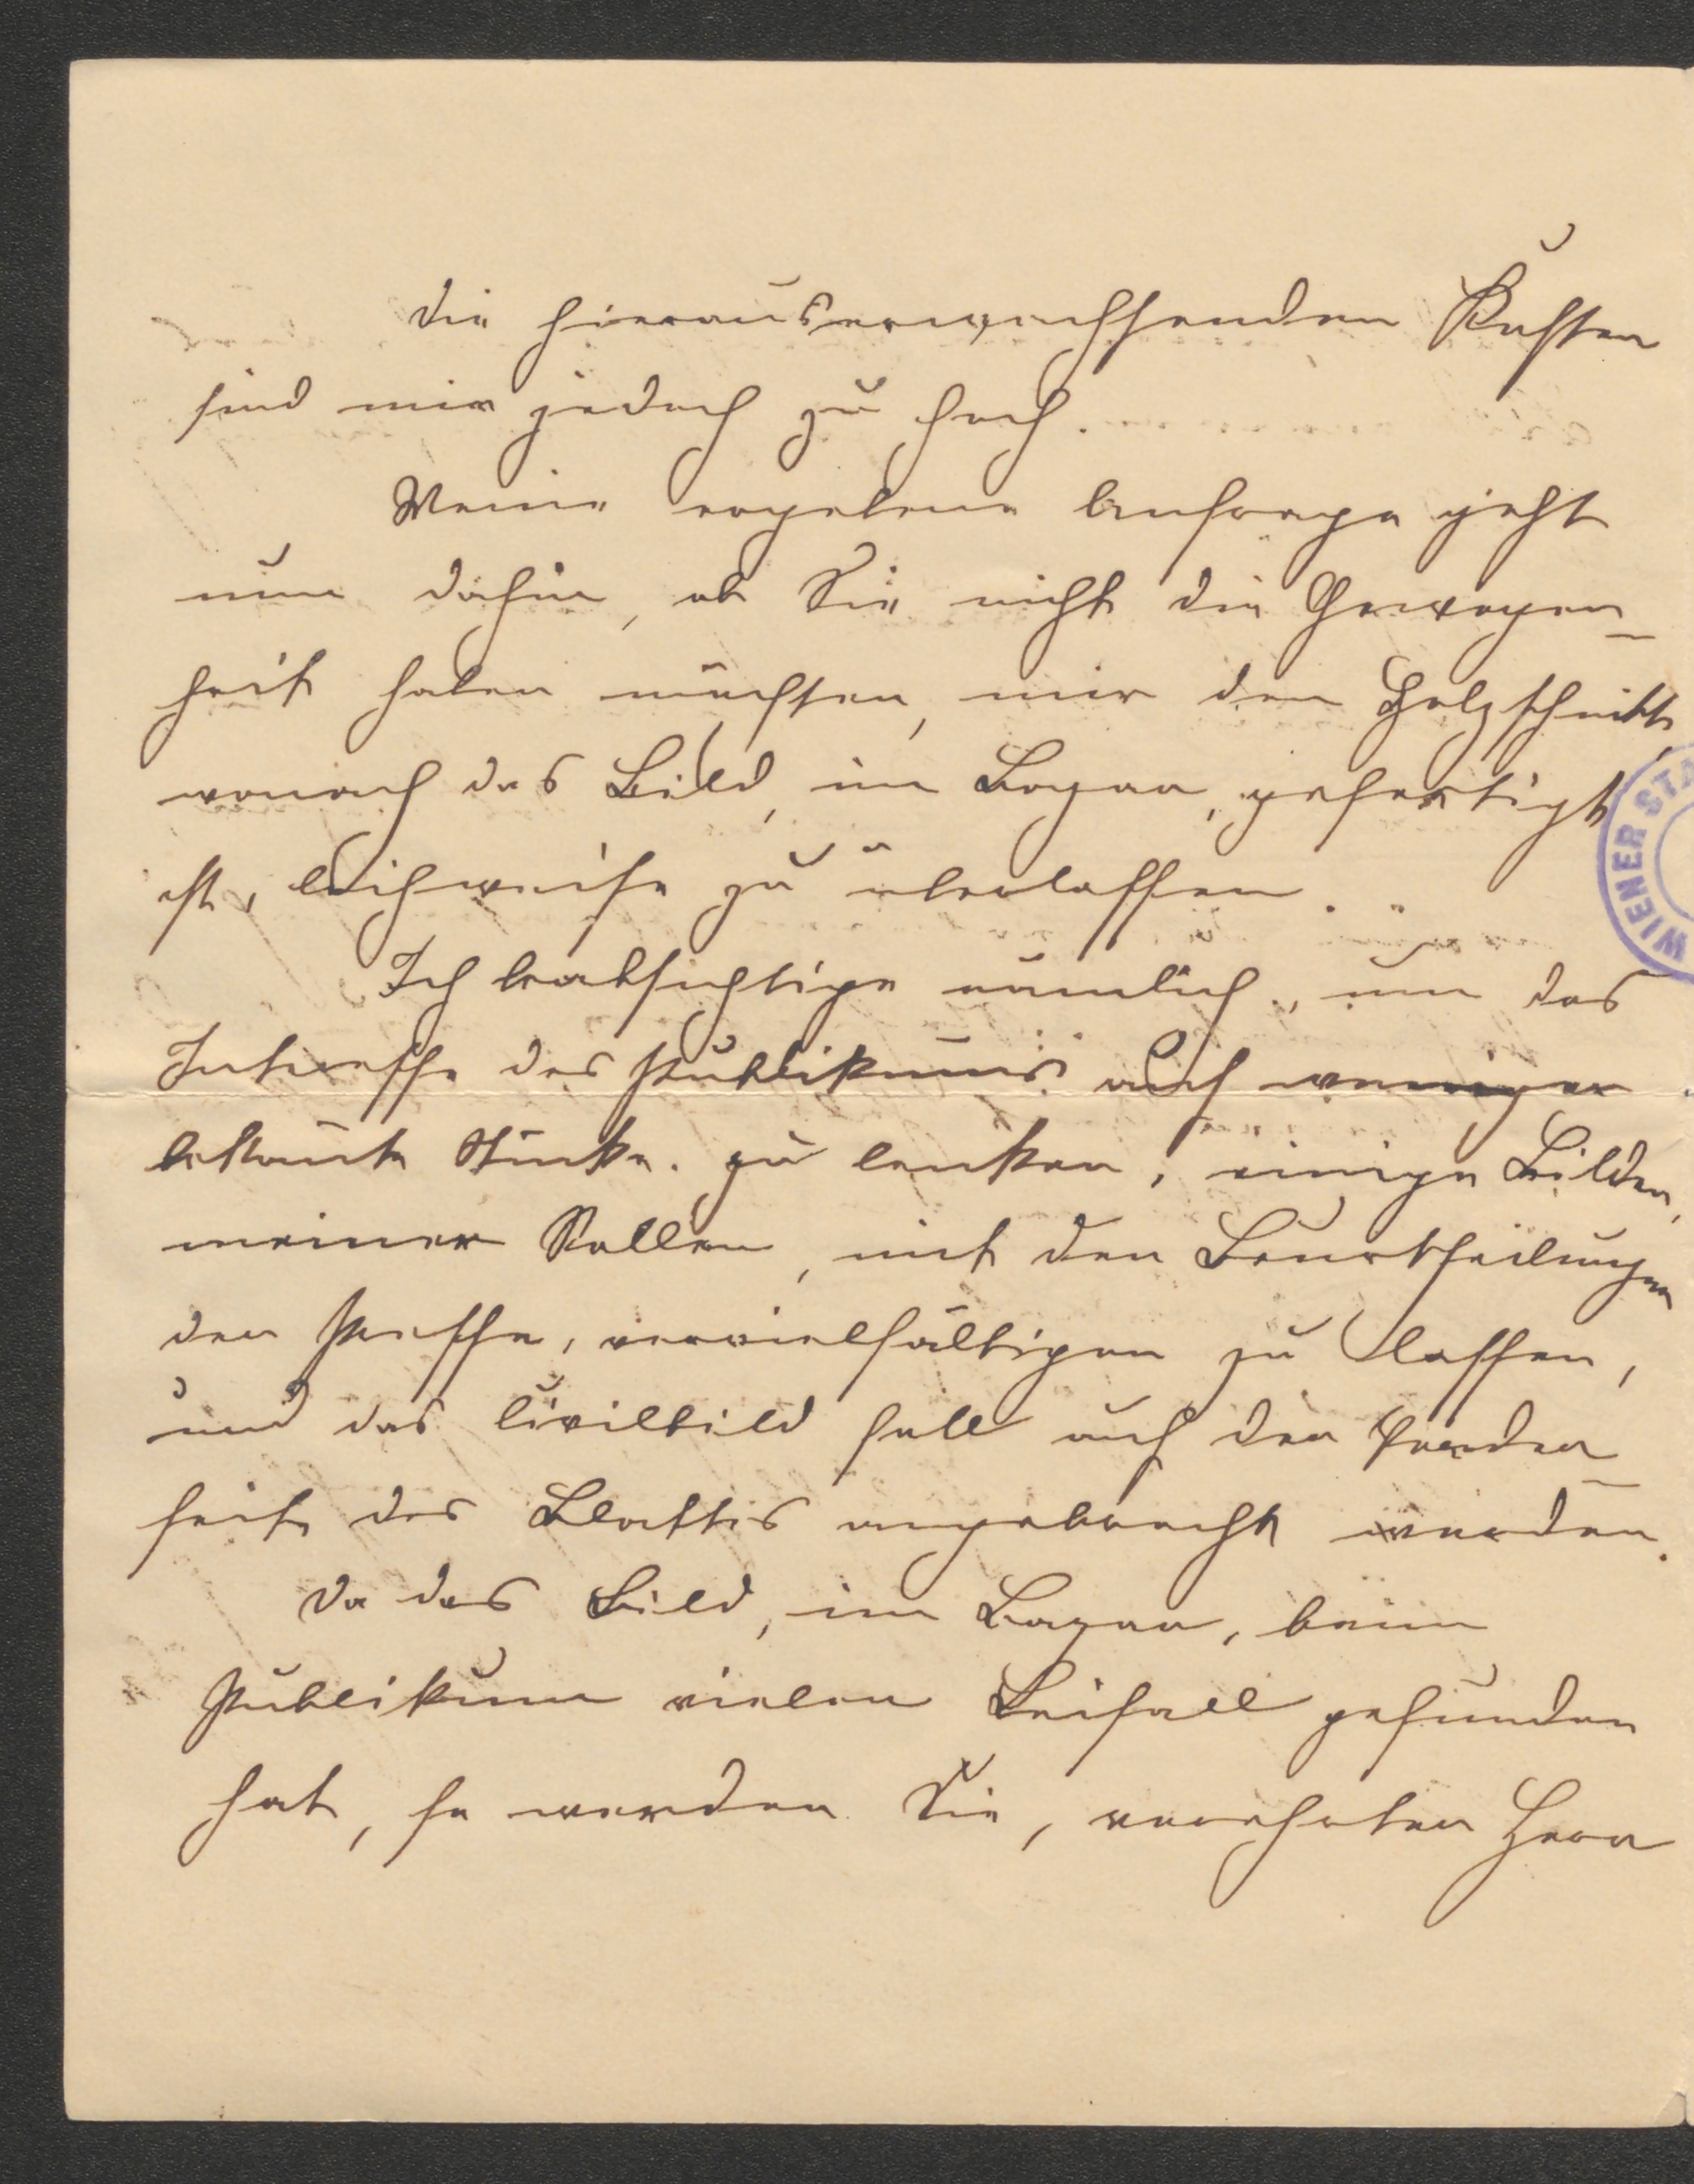 die hierauserwachsenden Kosten
sind mir jedoch zu hoch.
Meine ergebene Anfrage geht
nun dahin, ob Sie nicht die Gewogen-
heit haben möchten, mir den Holzschnitt,
wonach das Bild, im Bazar, gefertigt
ist, leihweise zu überlassen.
Ich beabsichtige nämlich, um das
Interesse des Publikums auf weniger
bekannte Stücke zu lenken, einige Bilder,
meiner Rollen, mit den Beurtheilungen
der Presse, vervielfältigen zu lassen,
und das Civilbild soll auf der Vorder-
seite des Blattes angebracht werden.
Da das Bild, im Bazar, beim
Publikum vielen Beifall gefunden
hat, so werden Sie, verehrter Herr
WIENER STA